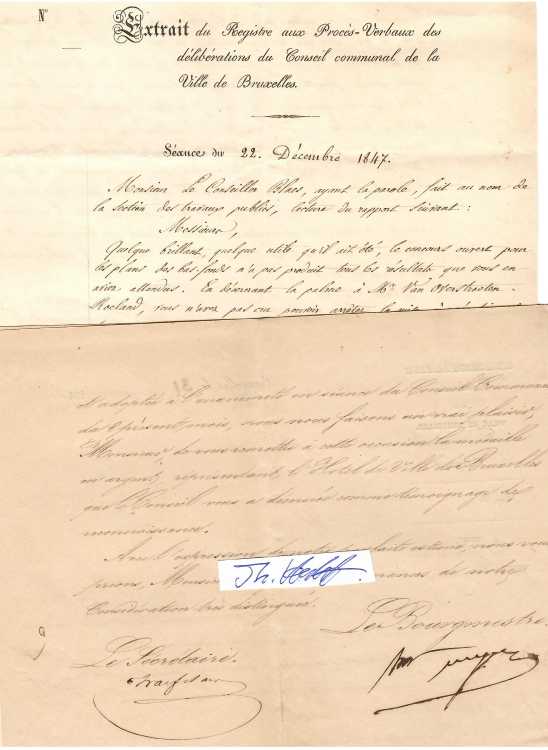 N°
Extrait du Registre aux Procès-Verbaux des
délibérations du Conseil communal de la
Ville de Bruxelles.
Séance du 22. Décembre 1847.
Monsieur Le Conseiller Blaes, ayant la parole, fait au nom de
la Section des travaux publics, lecture du rapport suivant :
Messieurs,
Quelque brillant, quelque utile qu'il ait été, le concours ouvert pour
les plans des bas-fonds n'a pas produit tous les résultats que vous en
aviez attendus. En décernant la palme à Mr Van Overstraeten-
Roeland, vous n'avez pas cru pouvoir arrêter la mise à
adoptée à l'unanimité en séance du Conseil Communal
du présent mois, nous nous faisons un vrai plaisir,
Monsieur, de vous remettre à cette occasion la médaille
en argent, représentant l'Hôtel de Ville de Bruxelles
que le Conseil vous a décernée comme témoignage de
reconnaissance.
Avec l'expression de estime, nous vous
prions, Monsieur de notre
Considération très distinguée.
Le Bourgmestre,
Le Secrétaire.
Th.